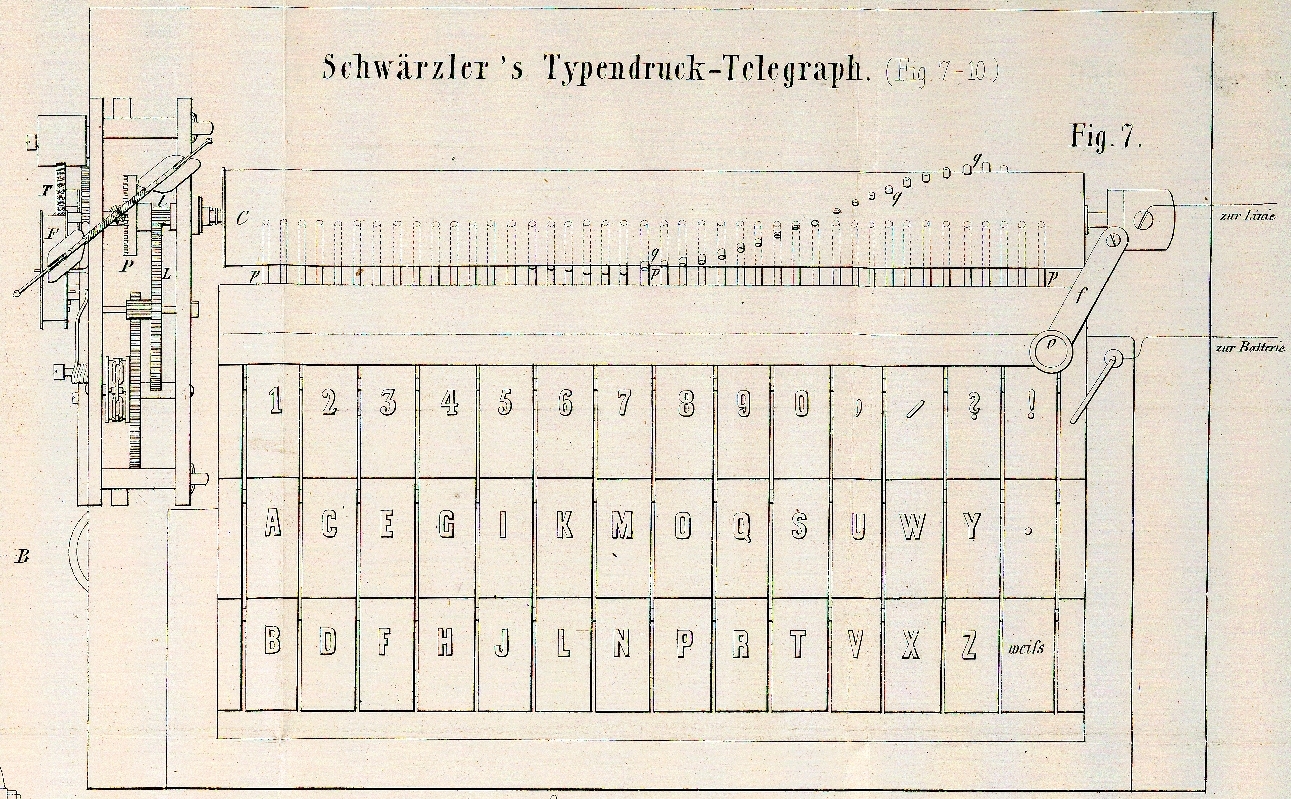 Schwärzler's Typendruck-Telegraph. (Fig. 7-10.)
Fig. 7.
g
g
T
l
zur Linie
C
F
g
P
L
p
p
p
f
o
zur Batterie
1 2 3 4 5 6 7 8 9 0 , / ? !
A C E G I K M O Q S U W Y .
B
B D F H J L N P R T V X Z weiſs